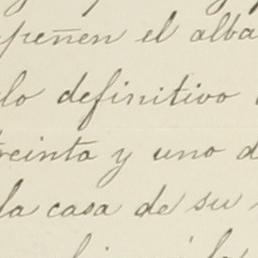 peñen el alba
lo definitivo
treinta y uno d
la casa de su